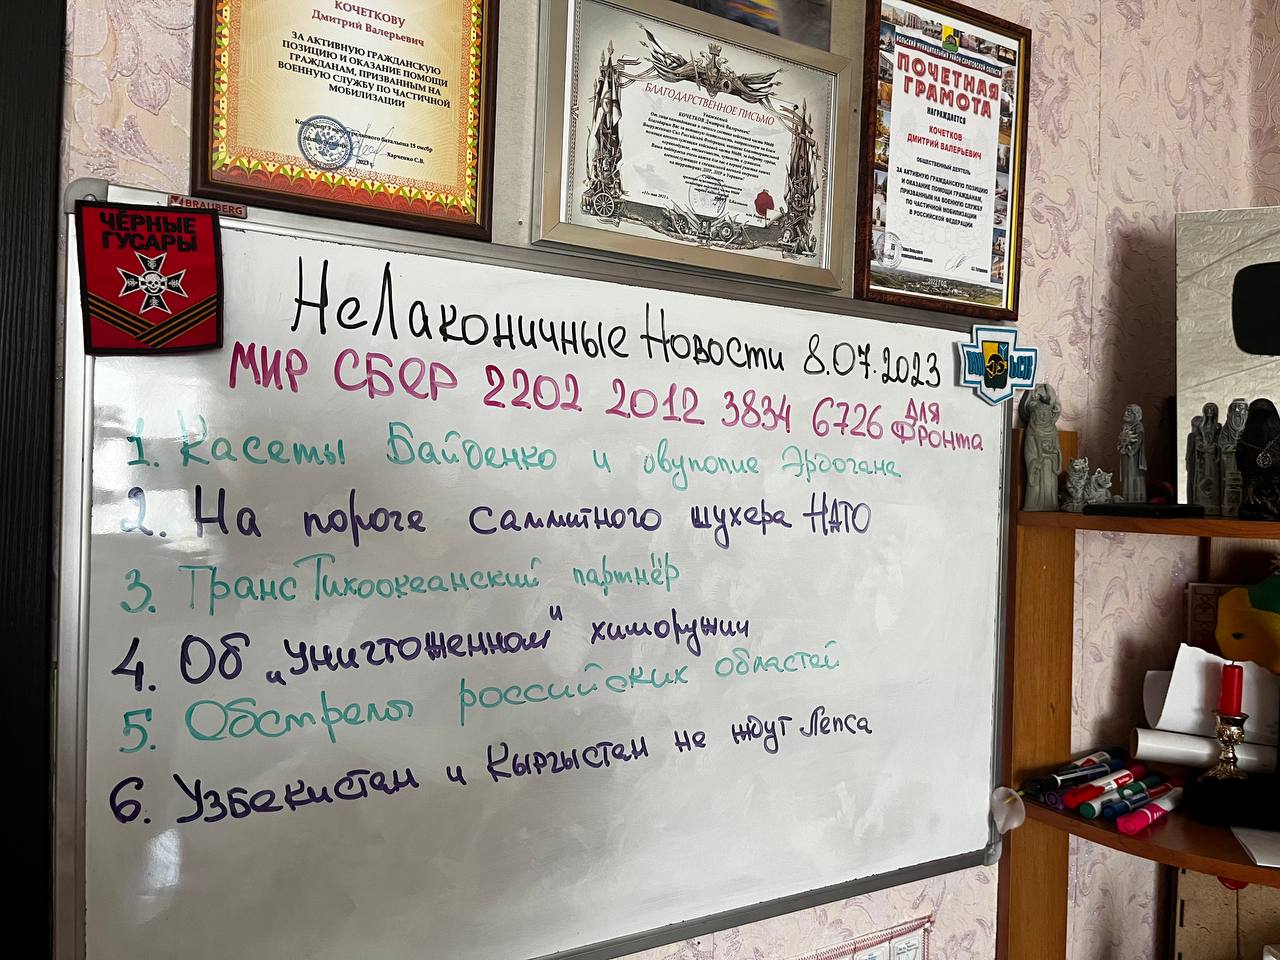 КОЧЕТКОВУ
Дмитрий Валерьевич
ЗА АКТИВНУЮ ГРАЖДАНСКУЮ
ПОЗИЦИЮ И ОКАЗАНИЕ ПОМОЩИ
ГРАЖДАНАМ, ПРИЗВАННЫМ НА
ВОЕННУЮ СЛУЖБУ ПО ЧАСТИЧНОЙ
МОБИЛИЗАЦИИ
батальона 15 омсбр
Харченко С.В.
2023 г.
БЛАГОДАРСТВЕННОЕ ПИСЬМО
Уважаемый
КОЧЕТКОВ Дмитрий Валерьевич!
ВОЛЬСКИЙ МУНИЦИПАЛЬНЫЙ РАЙОН САРАТОВСКОЙ ОБЛАСТИ
ПОЧЕТНАЯ
ГРАМОТА
НАГРАЖДАЕТСЯ
КОЧЕТКОВ
ДМИТРИЙ ВАЛЕРЬЕВИЧ
ОБЩЕСТВЕННЫЙ ДЕЯТЕЛЬ
ЗА АКТИВНУЮ ГРАЖДАНСКУЮ ПОЗИЦИЮ
И ОКАЗАНИЕ ПОМОЩИ ГРАЖДАНАМ,
ПРИЗВАННЫМ НА ВОЕННУЮ СЛУЖБУ
ПО ЧАСТИЧНОЙ МОБИЛИЗАЦИИ
В РОССИЙСКОЙ ФЕДЕРАЦИИ
BRAUBERG
ЧЁРНЫЕ
ГУСАРЫ
НеЛаконичные Новости 8.07.2023
МИР СБЕР 2202 2012 3834 6726 ДЛЯ
ФРОНТА
1. Касеты Байденко и овупопие Эрдогана
2. На пороге саммитного шухера НАТО
3. ТрансТихоокеанский партнёр
4. Об „уничтоженном" химоружии
5. Обстрелы российских областей
6. Узбекистан и Кыргыстан не ждут Лепса